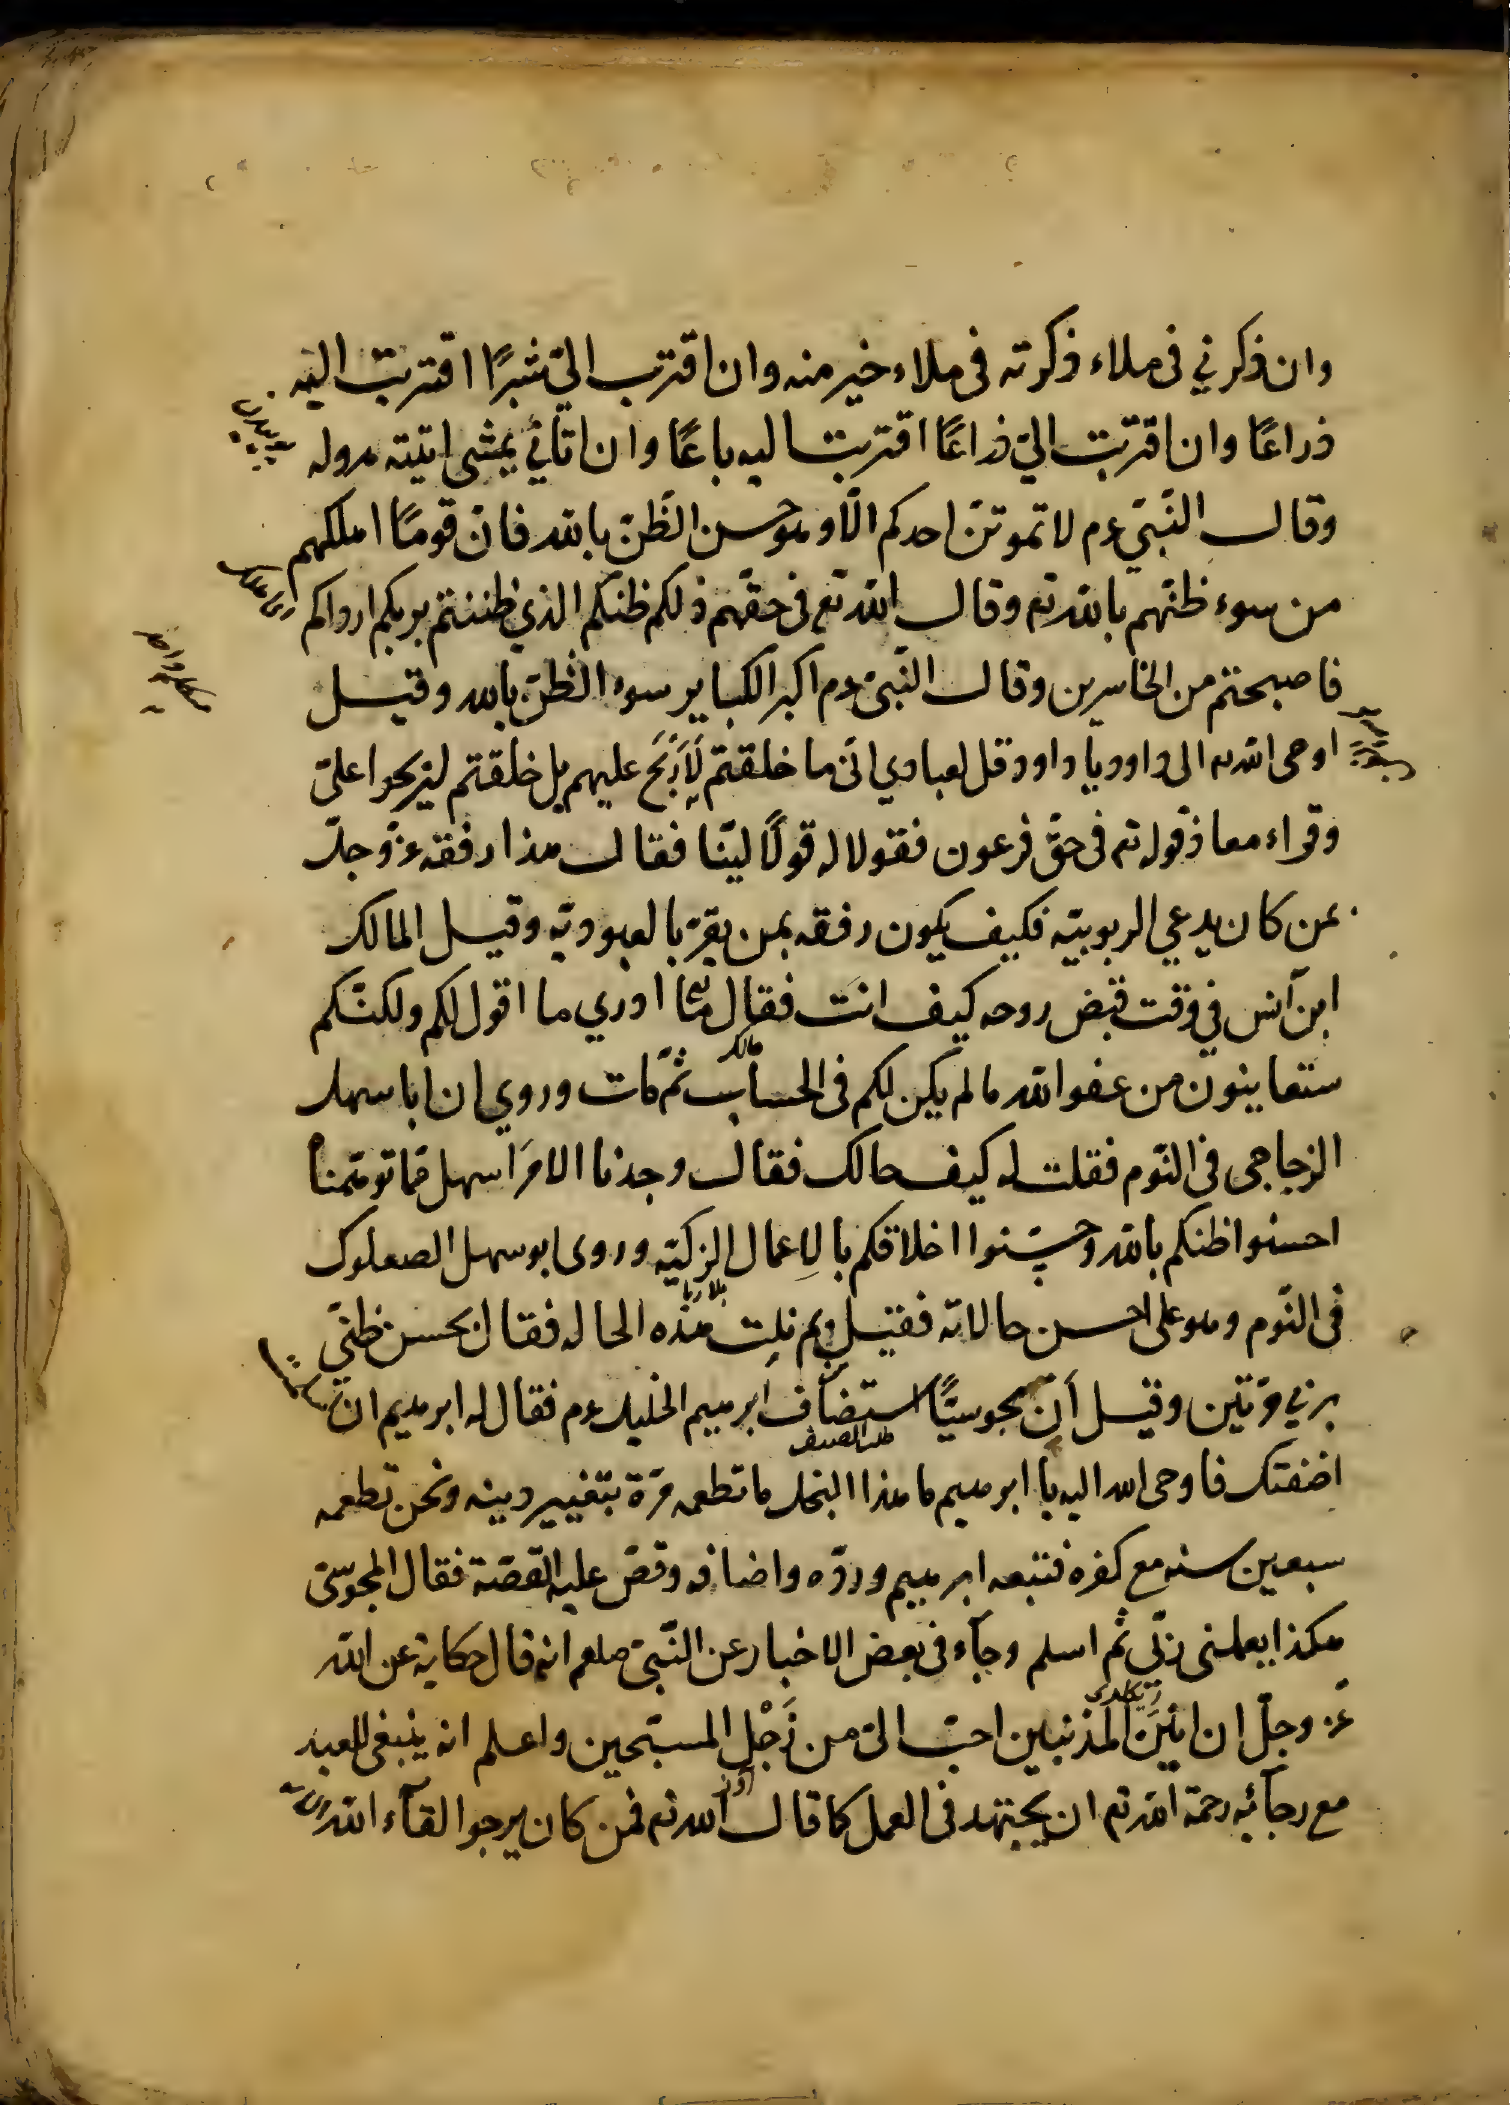 وان ذكرني فى ملاء ذكرته فى ملاء خير منه وان اقترب الىّ شبرًا اقتربت اليه
ذراعًا وان اقتربت الىّ ذراعًا اقتربت اليه باعًا وان اتانى يمشى اتيته هروله
وقال النّبىّ عم لا تموتنّ احدكم الّا وهو حسن الظّنّ بالله فانّ قومًا اهلكهم
من سوء ظنّهم بالله تع وقال الله تع فى حقّهم ذلكم ظنكم الذي ظننتم بربكم ارداكم
فاصبحتم من الخاسرين وقال النّبىّ عم اكبر الكباير سوء الظّنّ بالله وقيل
اوحى الله تع الى داود يا داود قل لعبادي انّى ما خلقتم لِاَرْبَحَ عليهم بل خلقتم ليربحوا علىّ
وقراء معاذ قوله تع فى حقّ فرعون فقولا له قولًا ليّنا فقال هذا رفقه عزّ وجلّ
بمن كان يدعي الربوبيّه فكيف يكون رفقه بمن يقرّ بالعبوديّه وقيل المالك
ابن اَنس في وقت قبض روحه كيف انتَ فقال ما ادري ما اقول لكم ولكنّكم
ستعاينون من عفو الله ما لم يكن لكم فى الحساب ثمّ مات وروي ان ابا سهل
مالك
الزجاجى فى النّوم فقلت له كيف حالك فقال وجدنا الامرَ اسهل ممّا توهّمنا
احسنوا ظنكم بالله وحسّنوا اخلاقكم بالاِعمال الزكيّه وروى ابو سهل الصعلوك
فى النّوم وهو على احسن حالاته فقيل وبم نِلت هذه الحاله فقال بحسن ظنّي
بربي مرّتين وقيل اَنّ مجوسيًّا استضاف ابرهيم الخليل عم فقال له ابرهيم ان
اضفتك فاوحى الله اليه يا ابرهيم ما هذا البخل ما تطعمه مرّة بتغيير دينه ونحن نطعمه
سبعين سنه مع كفره فتبعه ابرهيم وردّه واضافه وقصّ عليه القصّة فقال المجوسىّ
هكذا يعاملنى ربّى ثم اسلم وجآء فى بعض الاخبار عن النّبىّ صلعم انه قال حكاية عن الله
عزّ وجلّ ان انينَ المذنبين احبّ الىّ من زَجْلِ المسبّحين واعلم انه ينبغى للعبد
مع رجآئه رحمة الله تع ان يجتهد فى العمل كما قال الله تع فمن كان يرجوا لقآء الله